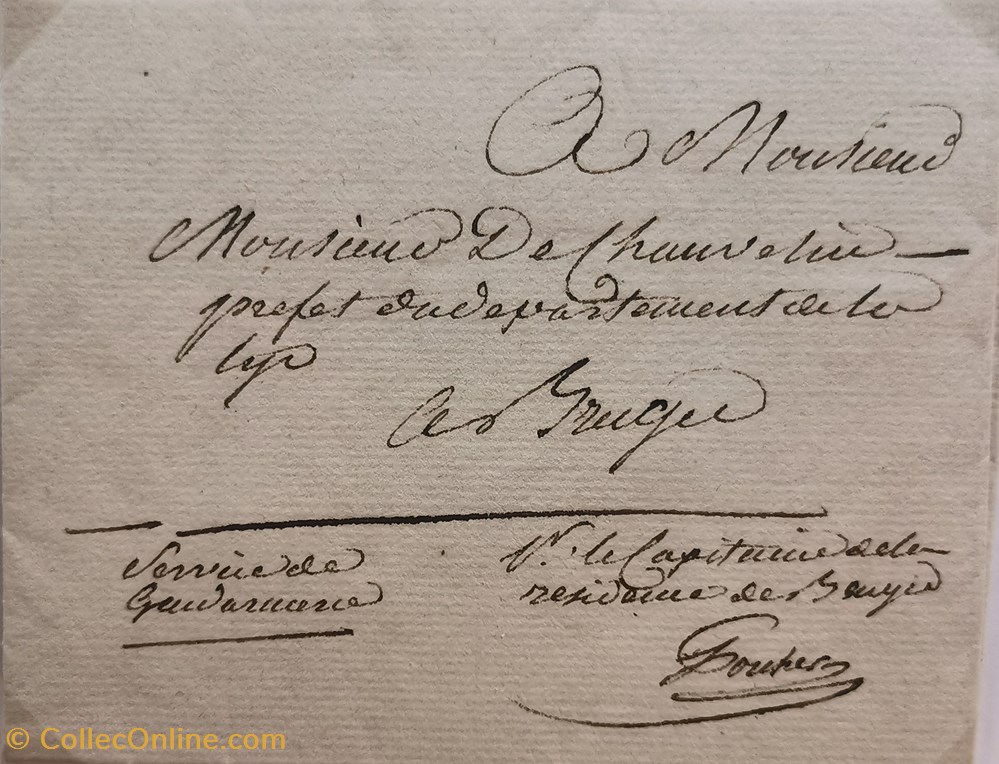 A Monsieur
Monsieur De Chauvelin
prefet du departement de la
lys
A Bruges
Service de
Gendarmerie
Pr. le Capitaine de la
residence de Bruges
© CollecOnline.com